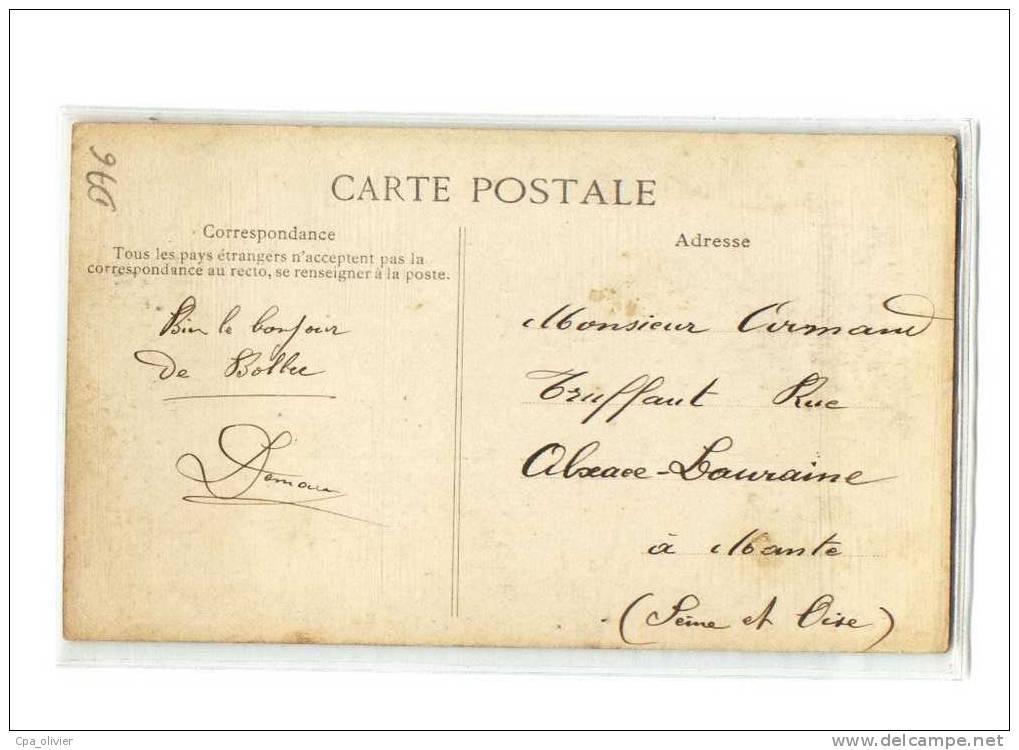 976
CARTE POSTALE
Correspondance
Tous les pays étrangers n'acceptent pas la
correspondance au recto, se renseigner à la poste.
Bien le bonjour
de Bolbec
Adresse
Monsieur Armand
Truffaut Rue
Alsace-Lauraine
à Mante
(Seine et Oise)
Cpa_olivier
www.delcampe.net